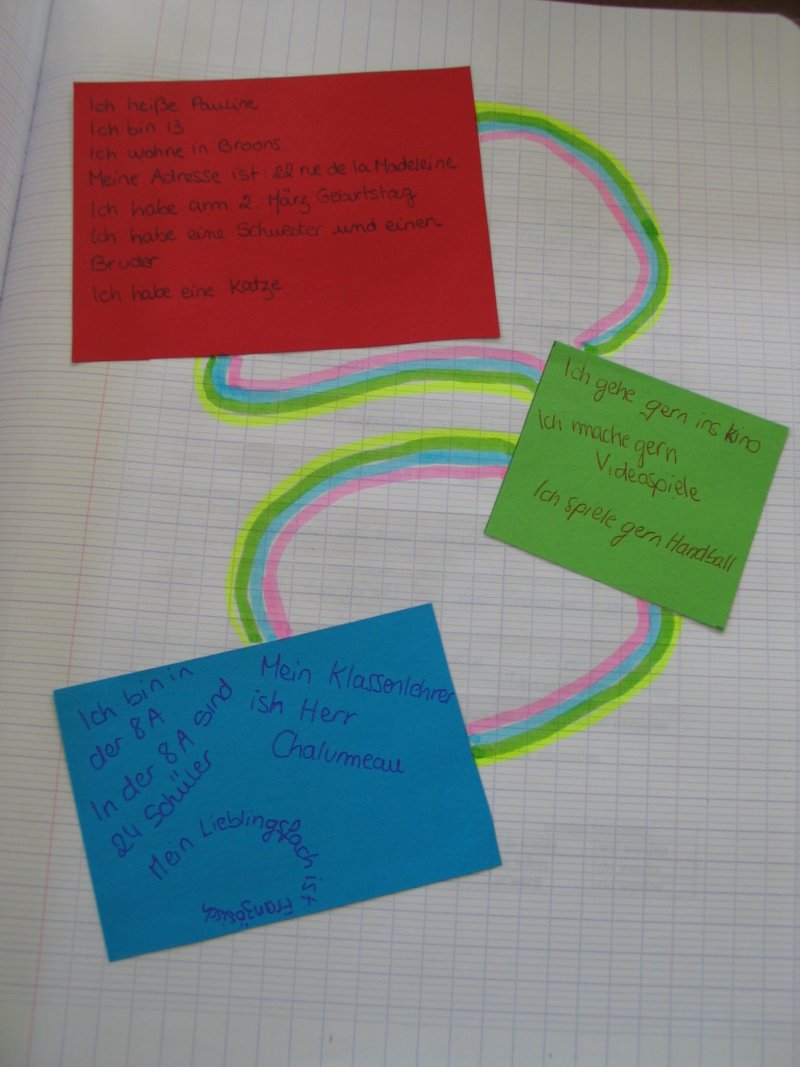 Ich heiße Pauline
Ich bin 13
Ich wohne in Broons
Meine Adresse ist: 22 rue de la Madeleine
Ich habe arm 2. März Geburtstag
Ich habe eine Schwester und einen
Bruder
Ich habe eine Katze
Ich gehe gern ins Kino
Ich mache gern
Videospiele
Ich spiele gern Handball
Ich bin in
der 8A
In der 8A sind
24 Schüler
Mein Klassenlehrer
ish Herr
Chalumeau
Mein Lieblingsfach ist